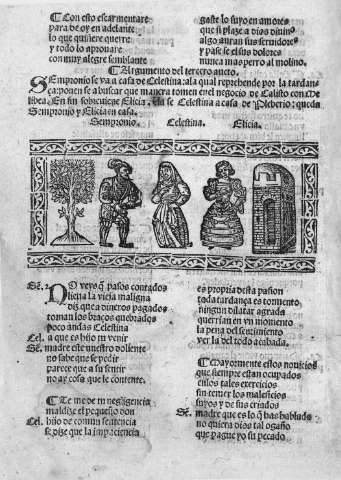 ¶ Con esto escarmentare
para de oy en adelante
lo que quiñere querre
y todo lo aprouare
con muy alegre semblante
gaste lo suyo en amores
que si plaze a dios diuino
algo auran sus seruidores
y passe se essos dolores
nunca mas perro al molino.
¶ Argumento del tercero aucto.
Sempronio se va a casa de Celestina: a la qual reprehende por la tardan-
ça: ponen se a buscar que manera tomen en el negocio de Calisto con Me
libea. En fin sobreuiene Elicia. Uase Celestina a casa de Pleberio: queda
Sempronio y Elicia en casa.
Sempronio. Celestina. Elicia.
Sē. No veys q̃ passos contados
Olicua la vieja maligna
diz que a dineros pagados
toman los braços quebrados
poco andas Celestina
Cel. a que es hijo tu venir
Sē. madre este nuestro doliente
no sabe que se pedir
parece que a su sentir
no ay cosa que le contente.
¶ Teme de tu negligencia
maldize el pequeño don
Cel. hijo de comun sentencia
se dize que la impaciencia
es propria desta passion
toda tardança es tormento
ningun dilatar agrada
querrian en vn momento
la pena del sentimiento
ver la del todo acabada.
¶ Mayormente estos nouicios
que siempre estan ocupados
en los tales exercicios
sin temer los maleficios
suyos y de sus criados
Sē. madre que es lo q̃ has hablado
no quiera dios tal ogaño
que pague yo su pecado